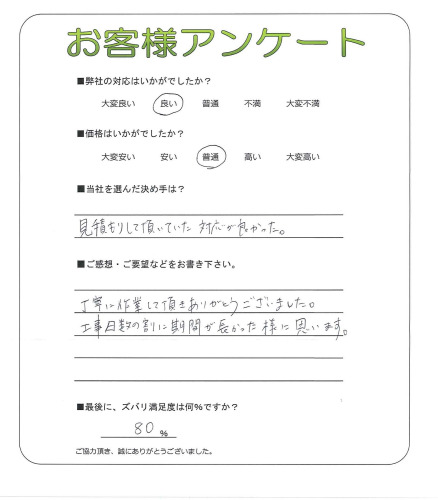 お客様アンケート
■弊社の対応はいかがでしたか？
大変良い 良い 普通 不満 大変不満
■価格はいかがでしたか？
大変安い 安い 普通 高い 大変高い
■当社を選んだ決め手は？
見積もりして頂いていた 対応が良かった。
■ご感想・ご要望などをお書き下さい。
丁寧に作業して頂きありがとうございました。
工事日数の割に期間が長かった様に思います。
■最後に、ズバリ満足度は何%ですか？
80 %
ご協力頂き、誠にありがとうございました。